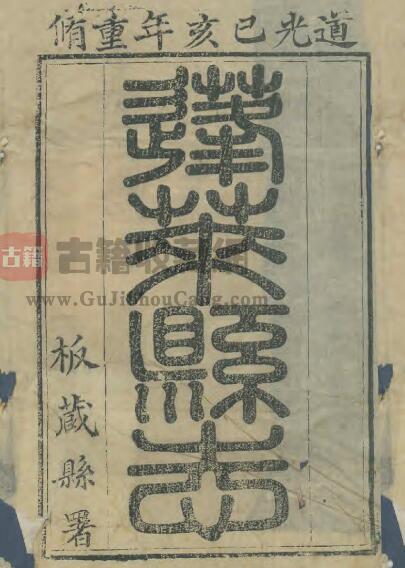 道光己亥年重脩
蓬萊縣志
板藏縣署
古籍 古籍收藏网
www.GuJiShouCang.com